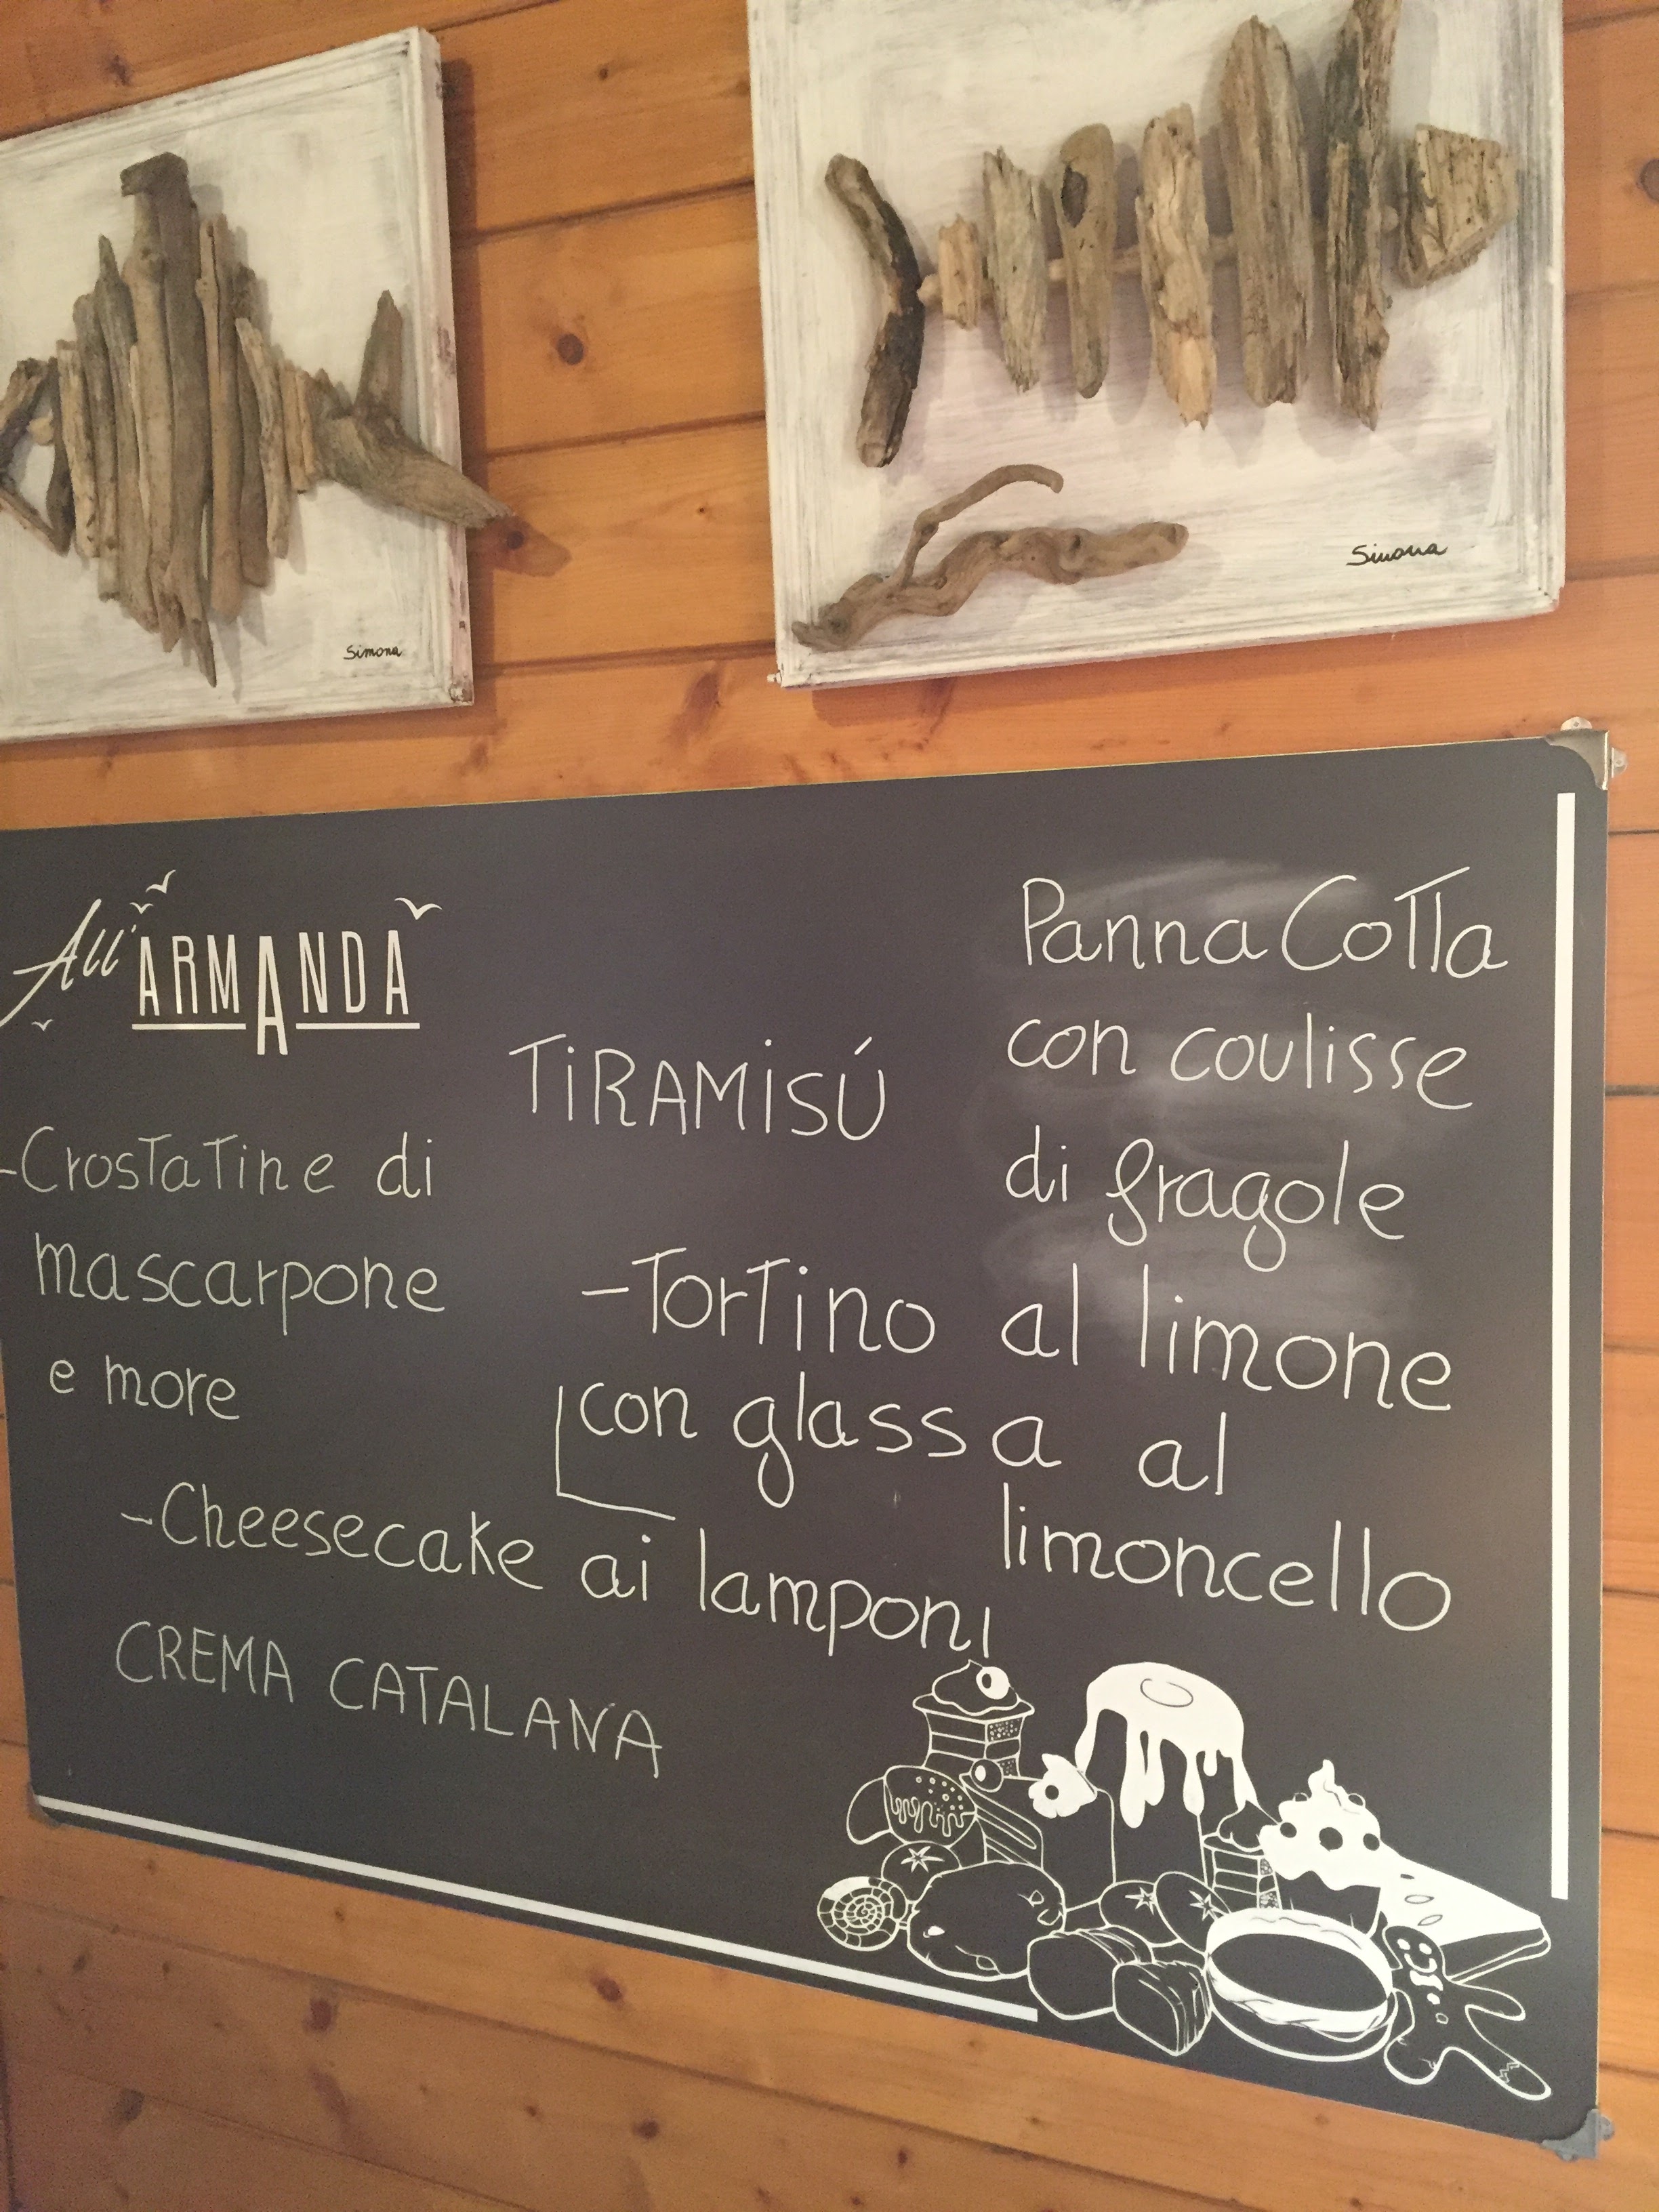 Simona
Simona
All'ARMANDA
-Crostatine di
mascarpone
e more
TiRAMiSÚ
Panna Cotta
con coulisse
di fragole
-Tortino al limone
con glassa al
limoncello
-Cheesecake ai lamponi
CREMA CATALANA